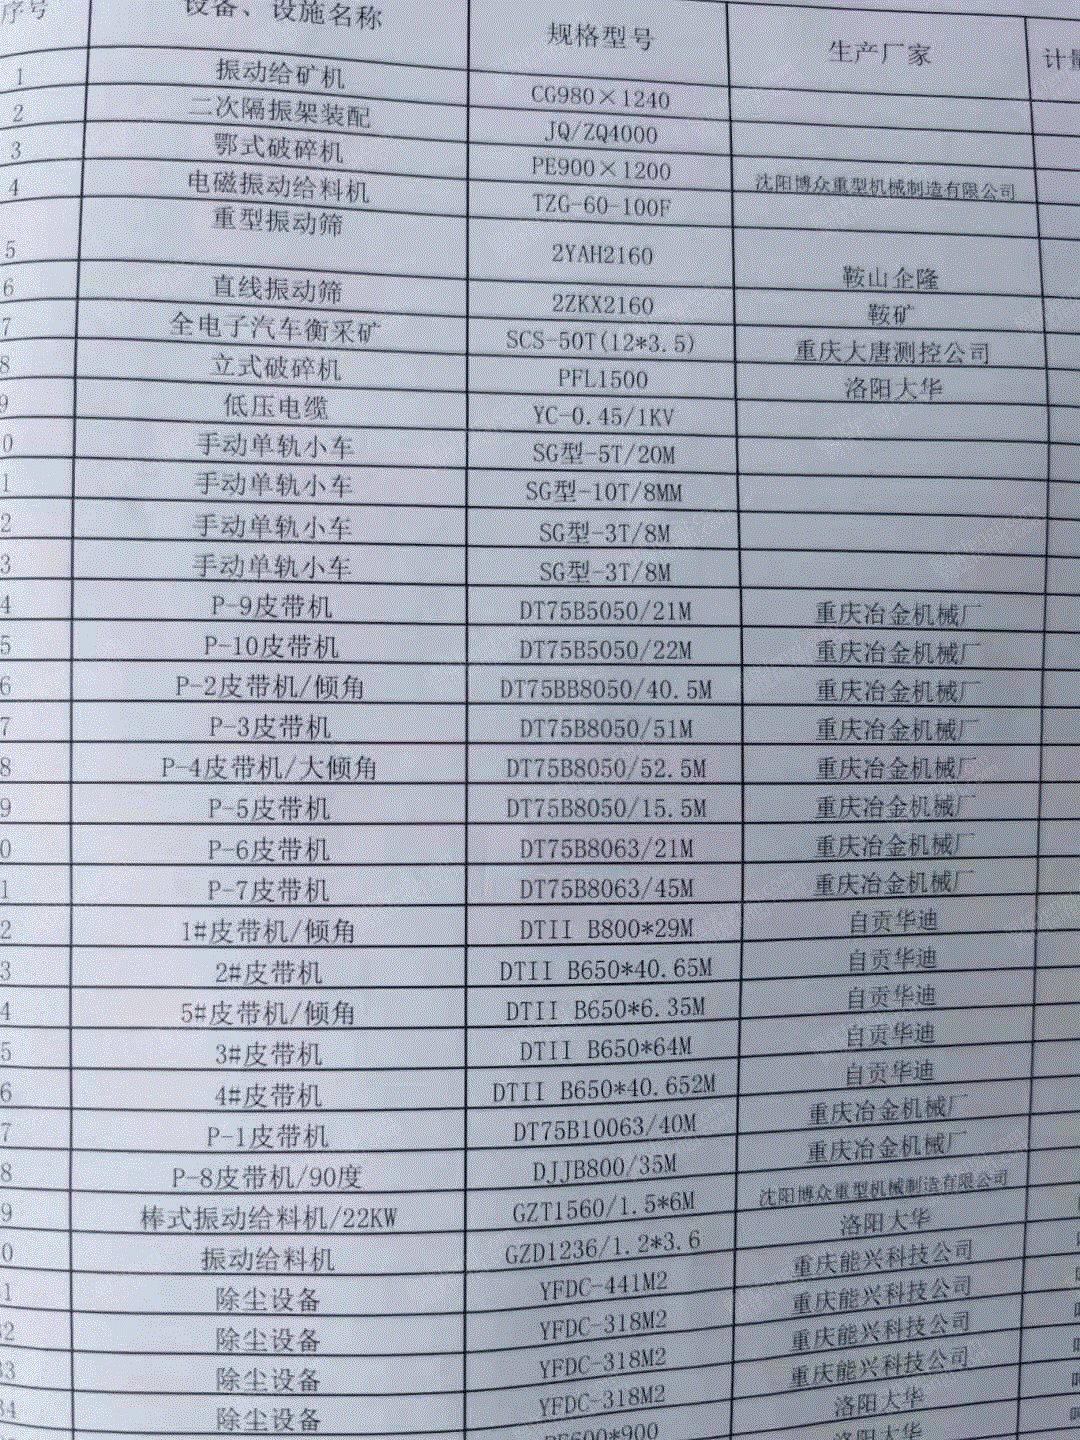 序号 设备、设施名称 规格型号 生产厂家 计量
1 振动给矿机 CG980×1240
2 二次隔振架装配 JQ/ZQ4000
3 鄂式破碎机 PE900×1200 沈阳博众重型机械制造有限公司
4 电磁振动给料机 TZG-60-100F
5 重型振动筛 2YAH2160 鞍山企隆
6 直线振动筛 2ZKX2160 鞍矿
7 全电子汽车衡采矿 SCS-50T(12*3.5) 重庆大唐测控公司
8 立式破碎机 PFL1500 洛阳大华
9 低压电缆 YC-0.45/1KV
0 手动单轨小车 SG型-5T/20M
1 手动单轨小车 SG型-10T/8MM
2 手动单轨小车 SG型-3T/8M
3 手动单轨小车 SG型-3T/8M
4 P-9皮带机 DT75B5050/21M 重庆冶金机械厂
5 P-10皮带机 DT75B5050/22M 重庆冶金机械厂
6 P-2皮带机/倾角 DT75BB8050/40.5M 重庆冶金机械厂
7 P-3皮带机 DT75B8050/51M 重庆冶金机械厂
8 P-4皮带机/大倾角 DT75B8050/52.5M 重庆冶金机械厂
9 P-5皮带机 DT75B8050/15.5M 重庆冶金机械厂
0 P-6皮带机 DT75B8063/21M 重庆冶金机械厂
1 P-7皮带机 DT75B8063/45M 重庆冶金机械厂
2 1#皮带机/倾角 DTII B800*29M 自贡华迪
3 2#皮带机 DTII B650*40.65M 自贡华迪
4 5#皮带机/倾角 DTII B650*6.35M 自贡华迪
5 3#皮带机 DTII B650*64M 自贡华迪
6 4#皮带机 DTII B650*40.652M 自贡华迪
7 P-1皮带机 DT75B10063/40M 重庆冶金机械厂
8 P-8皮带机/90度 DJJB800/35M 重庆冶金机械厂
9 棒式振动给料机/22KW GZT1560/1.5*6M 沈阳博众重型机械制造有限公司
0 振动给料机 GZD1236/1.2*3.6 洛阳大华
31 除尘设备 YFDC-441M2 重庆能兴科技公司
32 除尘设备 YFDC-318M2 重庆能兴科技公司
33 除尘设备 YFDC-318M2 重庆能兴科技公司
34 除尘设备 YFDC-318M2 重庆能兴科技公司
PE600*900 洛阳大华
洛阳大华